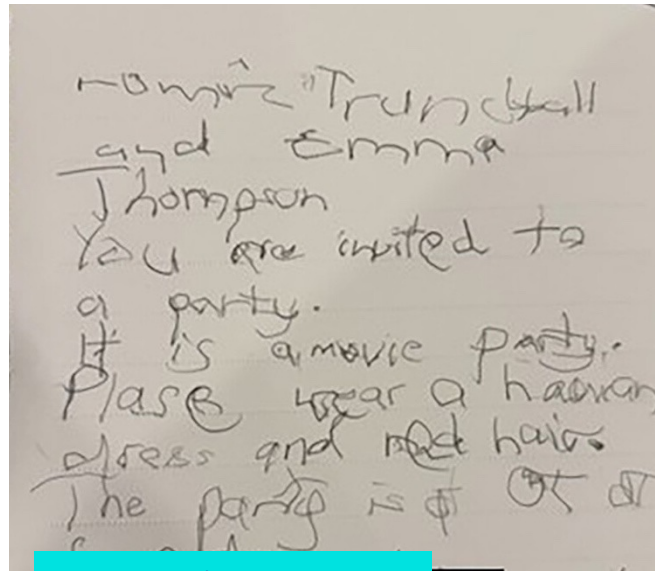 "Trunchall
and Emma
Thompson
You are invited to
a party.
It is a movie party.
Plase wear a
dress and red hair.
The party is